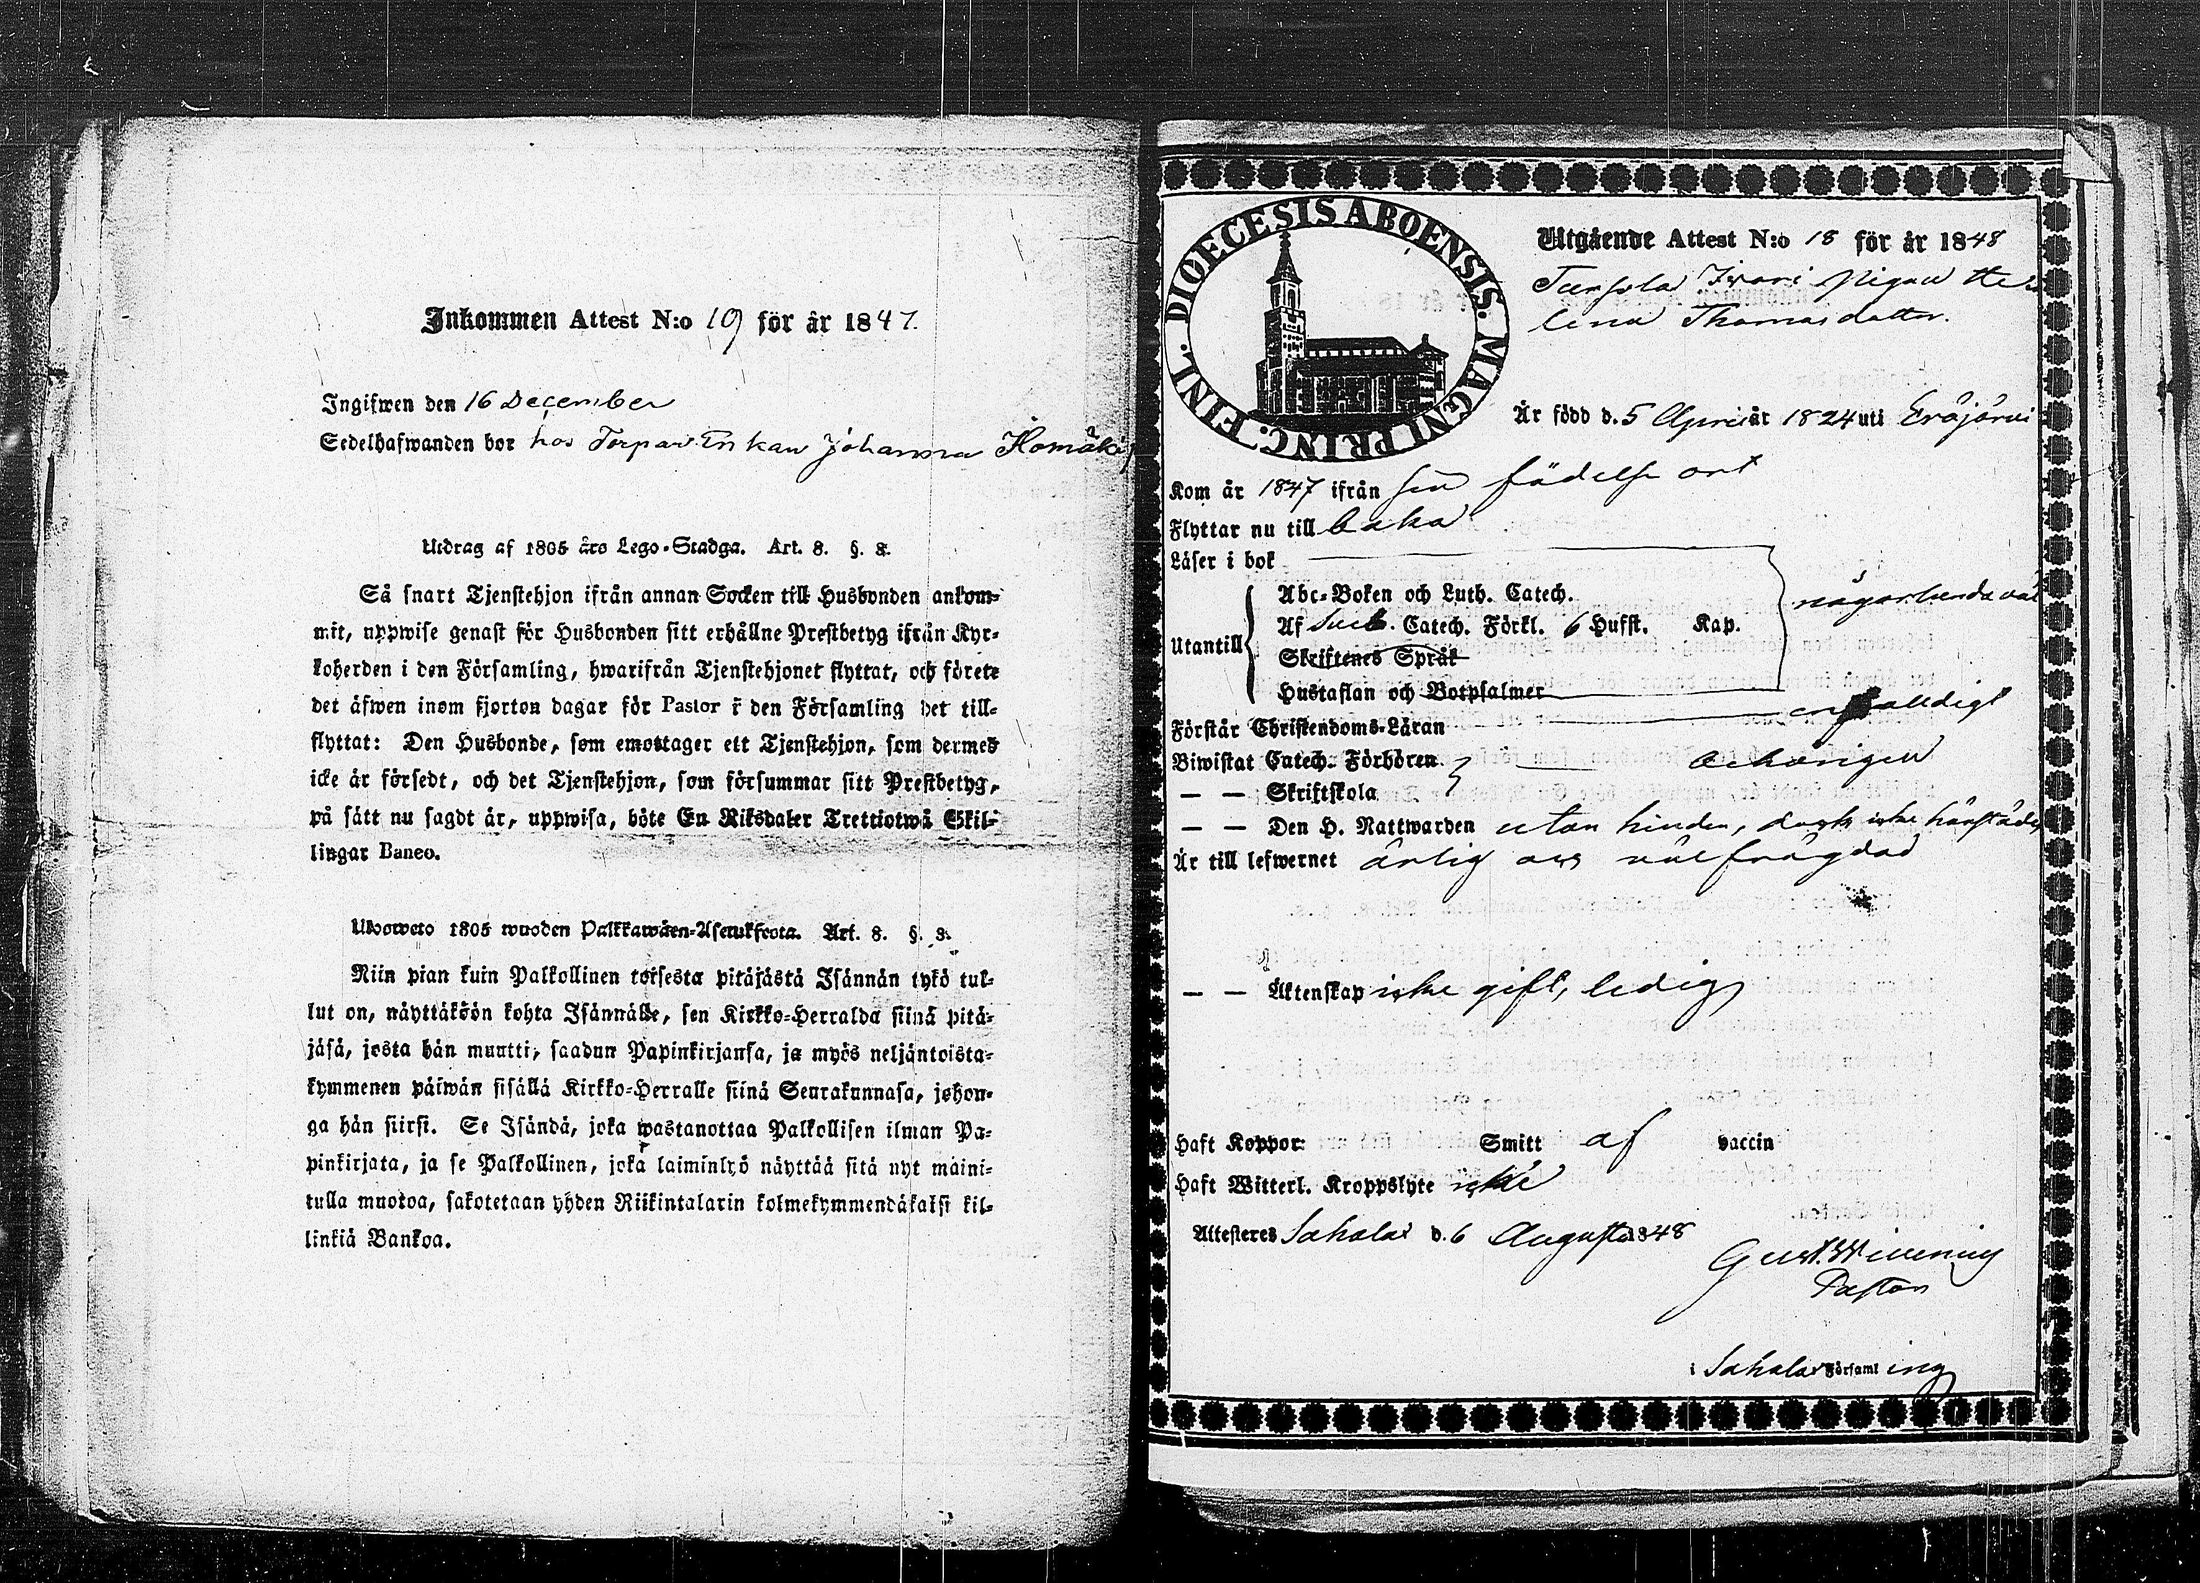 Inkommen Attest N:o 19 för år 1847.
Ingifwen den 16 December
Sedelhafwanden bor hos Torpar Enkan Johanna Homäki
Utdrag af 1805 års Lego-Stadga. Art. 8. §. 8.
Så snart Tjenstehjon ifrån annan Socken till Husbonden ankom-
mit, uppwise genast för Husbonden sitt erhållne Prestbetyg ifrån Kyr-
koherden i den Församling, hwarifrån Tjenstehjonet flyttat, och förete
det äfwen inom fjorton dagar för Pastor i den Församling det till-
flyttat: Den Husbonde, som emottager ett Tjenstehjon, som dermed
icke är försedt, och det Tjenstehjon, som försummar sitt Prestbetyg,
på sätt nu sagdt är, uppwisa, böte En Riksdaler Trettiotwå Skil-
lingar Banco.
Ulosweto 1805 wuoden Palkkawäen-Asetuksesta. Art. 8. §. 8.
Niin pian kuin Palkollinen toisesta pitäjästä Isännän tykö tul-
lut on, näyttäköön kohta Isännälle, sen Kirkko-Herralda siinä pitä-
jäsä, josta hän muutti, saadun Papinkirjansa, ja myös neljäntoista-
kymmenen päiwän sisällä Kirkko-Herralle siinä Seurakunnasa, johon-
ga hän siirsi. Se Isändä, joka wastanottaa Palkollisen ilman Pa-
pinkirjata, ja se Palkollinen, joka laiminlyö näyttää sitä nyt maini-
tulla muotoa, sakotetaan yhden Riikintalarin kolmekymmendäkaksi kil-
linkiä Bankoa.
DIOECESIS ABOENSIS. MAGNI PRINC. FINL.
Utgående Attest N:o 18 för år 1848
Isoari pigan He
lena Thomasdotter.
Är född d. 5 April år 1824 uti Eräjärvi
Kom år 1847 ifrån sin födelse ort
Flyttar nu till baka
Läser i bok
Abc-Boken och Luth. Catech.
någorlunda väl
Utantill Af Sveb. Catech. Förkl. 6 Hufst. Kap.
Skriftenes Språk
Hustaflan och Botpsalmer
Förstår Christendoms-Läran enfaldigt
Biwistat Catech. Förhören behörigen
— — Skriftskola
— — Den H. Nattwarden utan hinder, dock icke härstädes
Är till lefwernet ärlig och väl frägdad
— — Äktenskap icke gift, ledig
Haft Koppor Smitt af vaccin
Haft Witterl. Kroppslyte icke
Attesteres Sahalax d. 6 Augusti 1848
Gust. Winning
Pastor
i Sahalax Församl ing